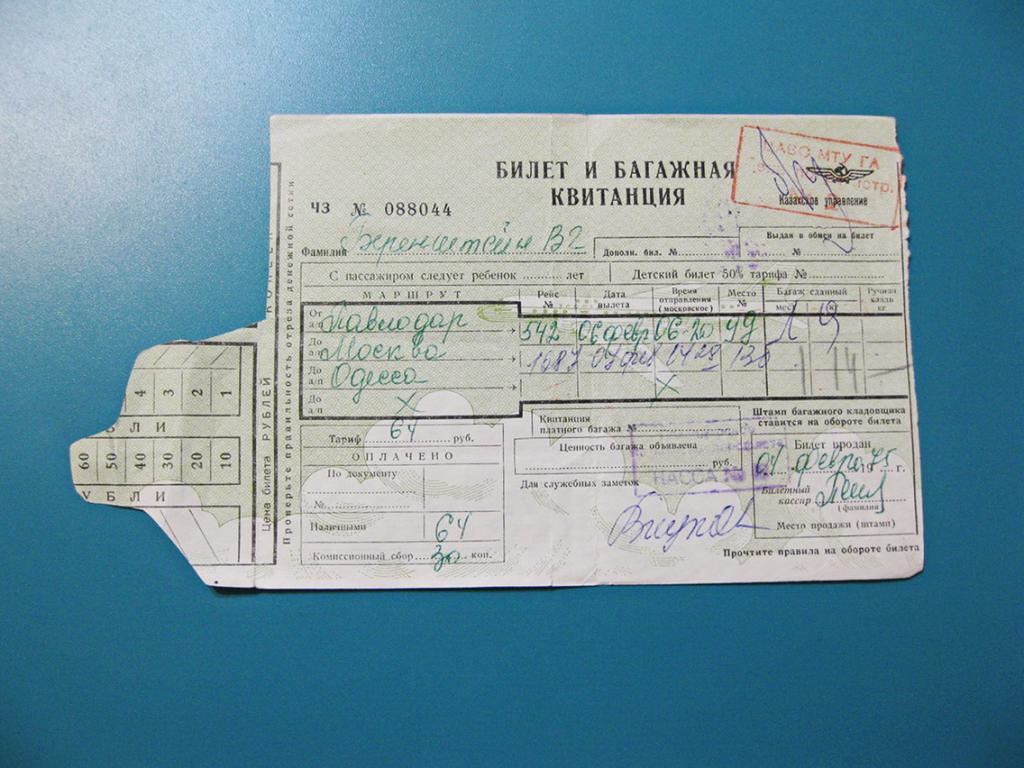 БИЛЕТ И БАГАЖНАЯ
КВИТАНЦИЯ
МТУ ГА
Казахское управление
ЧЗ № 088044
Выдан в обмен на билет
№
Фамилия Беренштейн ВГ
Дополн. бил. №
С пассажиром следует ребенок лет
Детский билет 50% тарифа №
МАРШРУТ
Рейс №
Дата вылета
Время отправления (московское)
Место №
Багаж сданный
мест
кг
Ручная кладь кг
От а/п Павлодар 542 06 февр 06-20 99 1 9
До а/п Москва 130 1 14
До а/п Одесса X
До а/п X
Тариф 64 руб.
ОПЛАЧЕНО
По документу
№
Наличными 64
Комиссионный сбор 30 коп.
Квитанция платного багажа №
Штамп багажного кладовщика ставится на обороте билета
Ценность багажа объявлена
руб.
КАССА №
Для служебных заметок
Билет продан
04 февр 1975 г.
Билетный кассир
(фамилия)
Место продажи (штамп)
Прочтите правила на обороте билета
Проверьте правильность отреза денежной сетки
Цена билета РУБЛЕЙ
КОПЕЕК
4 3 2 1
БЛИ
60 50 40 30 20 10
УБЛИ